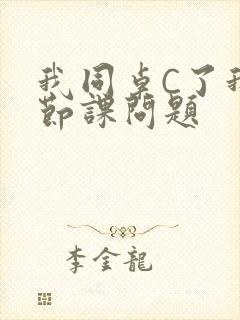 我同桌C了我
節課問題
李金龍